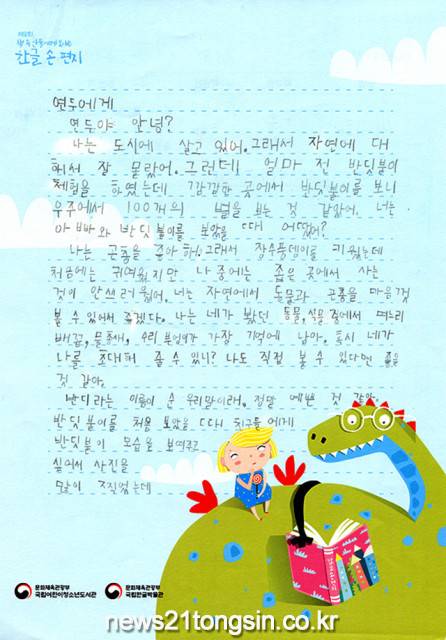 한글 손 편지
연두에게
연두야 안녕?
나는 도시에 살고 있어. 그래서 자연에 대
해서 잘 몰랐어. 그런데 얼마 전 반딧불이
체험을 하였는데 캄캄한 곳에서 반딧불이를 보니
우주에서 100개의 별을 보는 것 같았어. 너는
아빠와 반딧불이를 보았을 때 어땠어?
나는 곤충을 좋아해. 그래서 장수풍뎅이를 키웠는데
처음에는 귀여웠지만 나중에는 좁은 곳에서 사는
것이 안쓰러웠어. 너는 자연에서 동물과 곤충을 마음껏
볼 수 있어서 좋겠다. 나는 네가 봤던 동물, 식물 중에서 며느리
배꼽, 물총새, 수리부엉이가 가장 기억에 남아. 혹시 네가
나를 초대해 줄 수 있니? 나도 직접 볼 수 있다면 좋을
것 같아.
반디라는 이름이 순 우리말이래. 정말 예쁜 것 같아.
반딧불이를 처음 보았을 때 친구들에게
반딧불이 모습을 보여주고
싶어서 사진을
많이 찍었는데
문화체육관광부
국립어린이청소년도서관
문화체육관광부
국립한글박물관
news21tongsin.co.kr